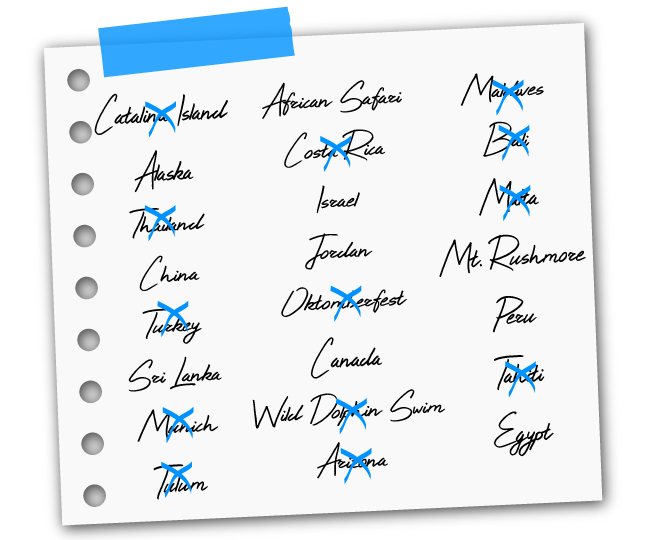 Catalina Island
Alaska
Thailand
China
Turkey
Sri Lanka
Munich
Tulum
African Safari
Costa Rica
Israel
Jordan
Oktomberfest
Canada
Wild Dolphin Swim
Arizona
Maldives
Bali
Malta
Mt. Rushmore
Peru
Tahiti
Egypt